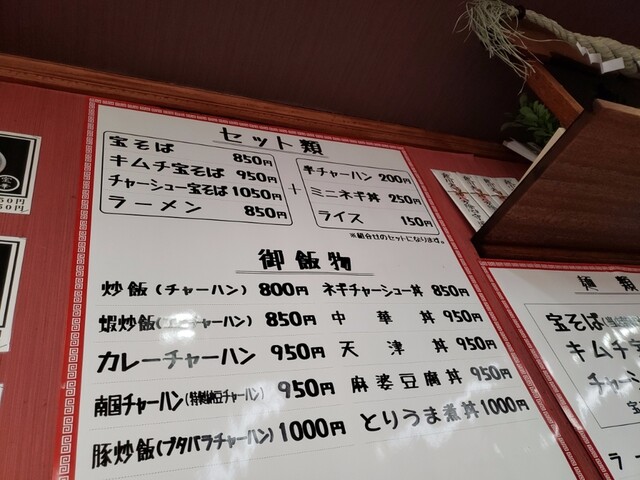 セット類
宝そば 850円
キムチ宝そば 950円
チャーシュー宝そば 1050円
ラーメン 850円
+
半チャーハン 200円
ミニネギ丼 250円
ライス 150円
※組合せのセットになります。
御飯物
炒飯(チャーハン) 800円
蝦炒飯(エビチャーハン) 850円
カレーチャーハン 950円
南国チャーハン(特製納豆チャーハン) 950円
豚炒飯(ブタバラチャーハン) 1000円
ネギチャーシュー丼 850円
中華丼 950円
天津丼 950円
麻婆豆腐丼 950円
とりうま煮丼 1000円
麺類
宝そば
キムチ宝
チャーシ
宝
ラー
50円
50円